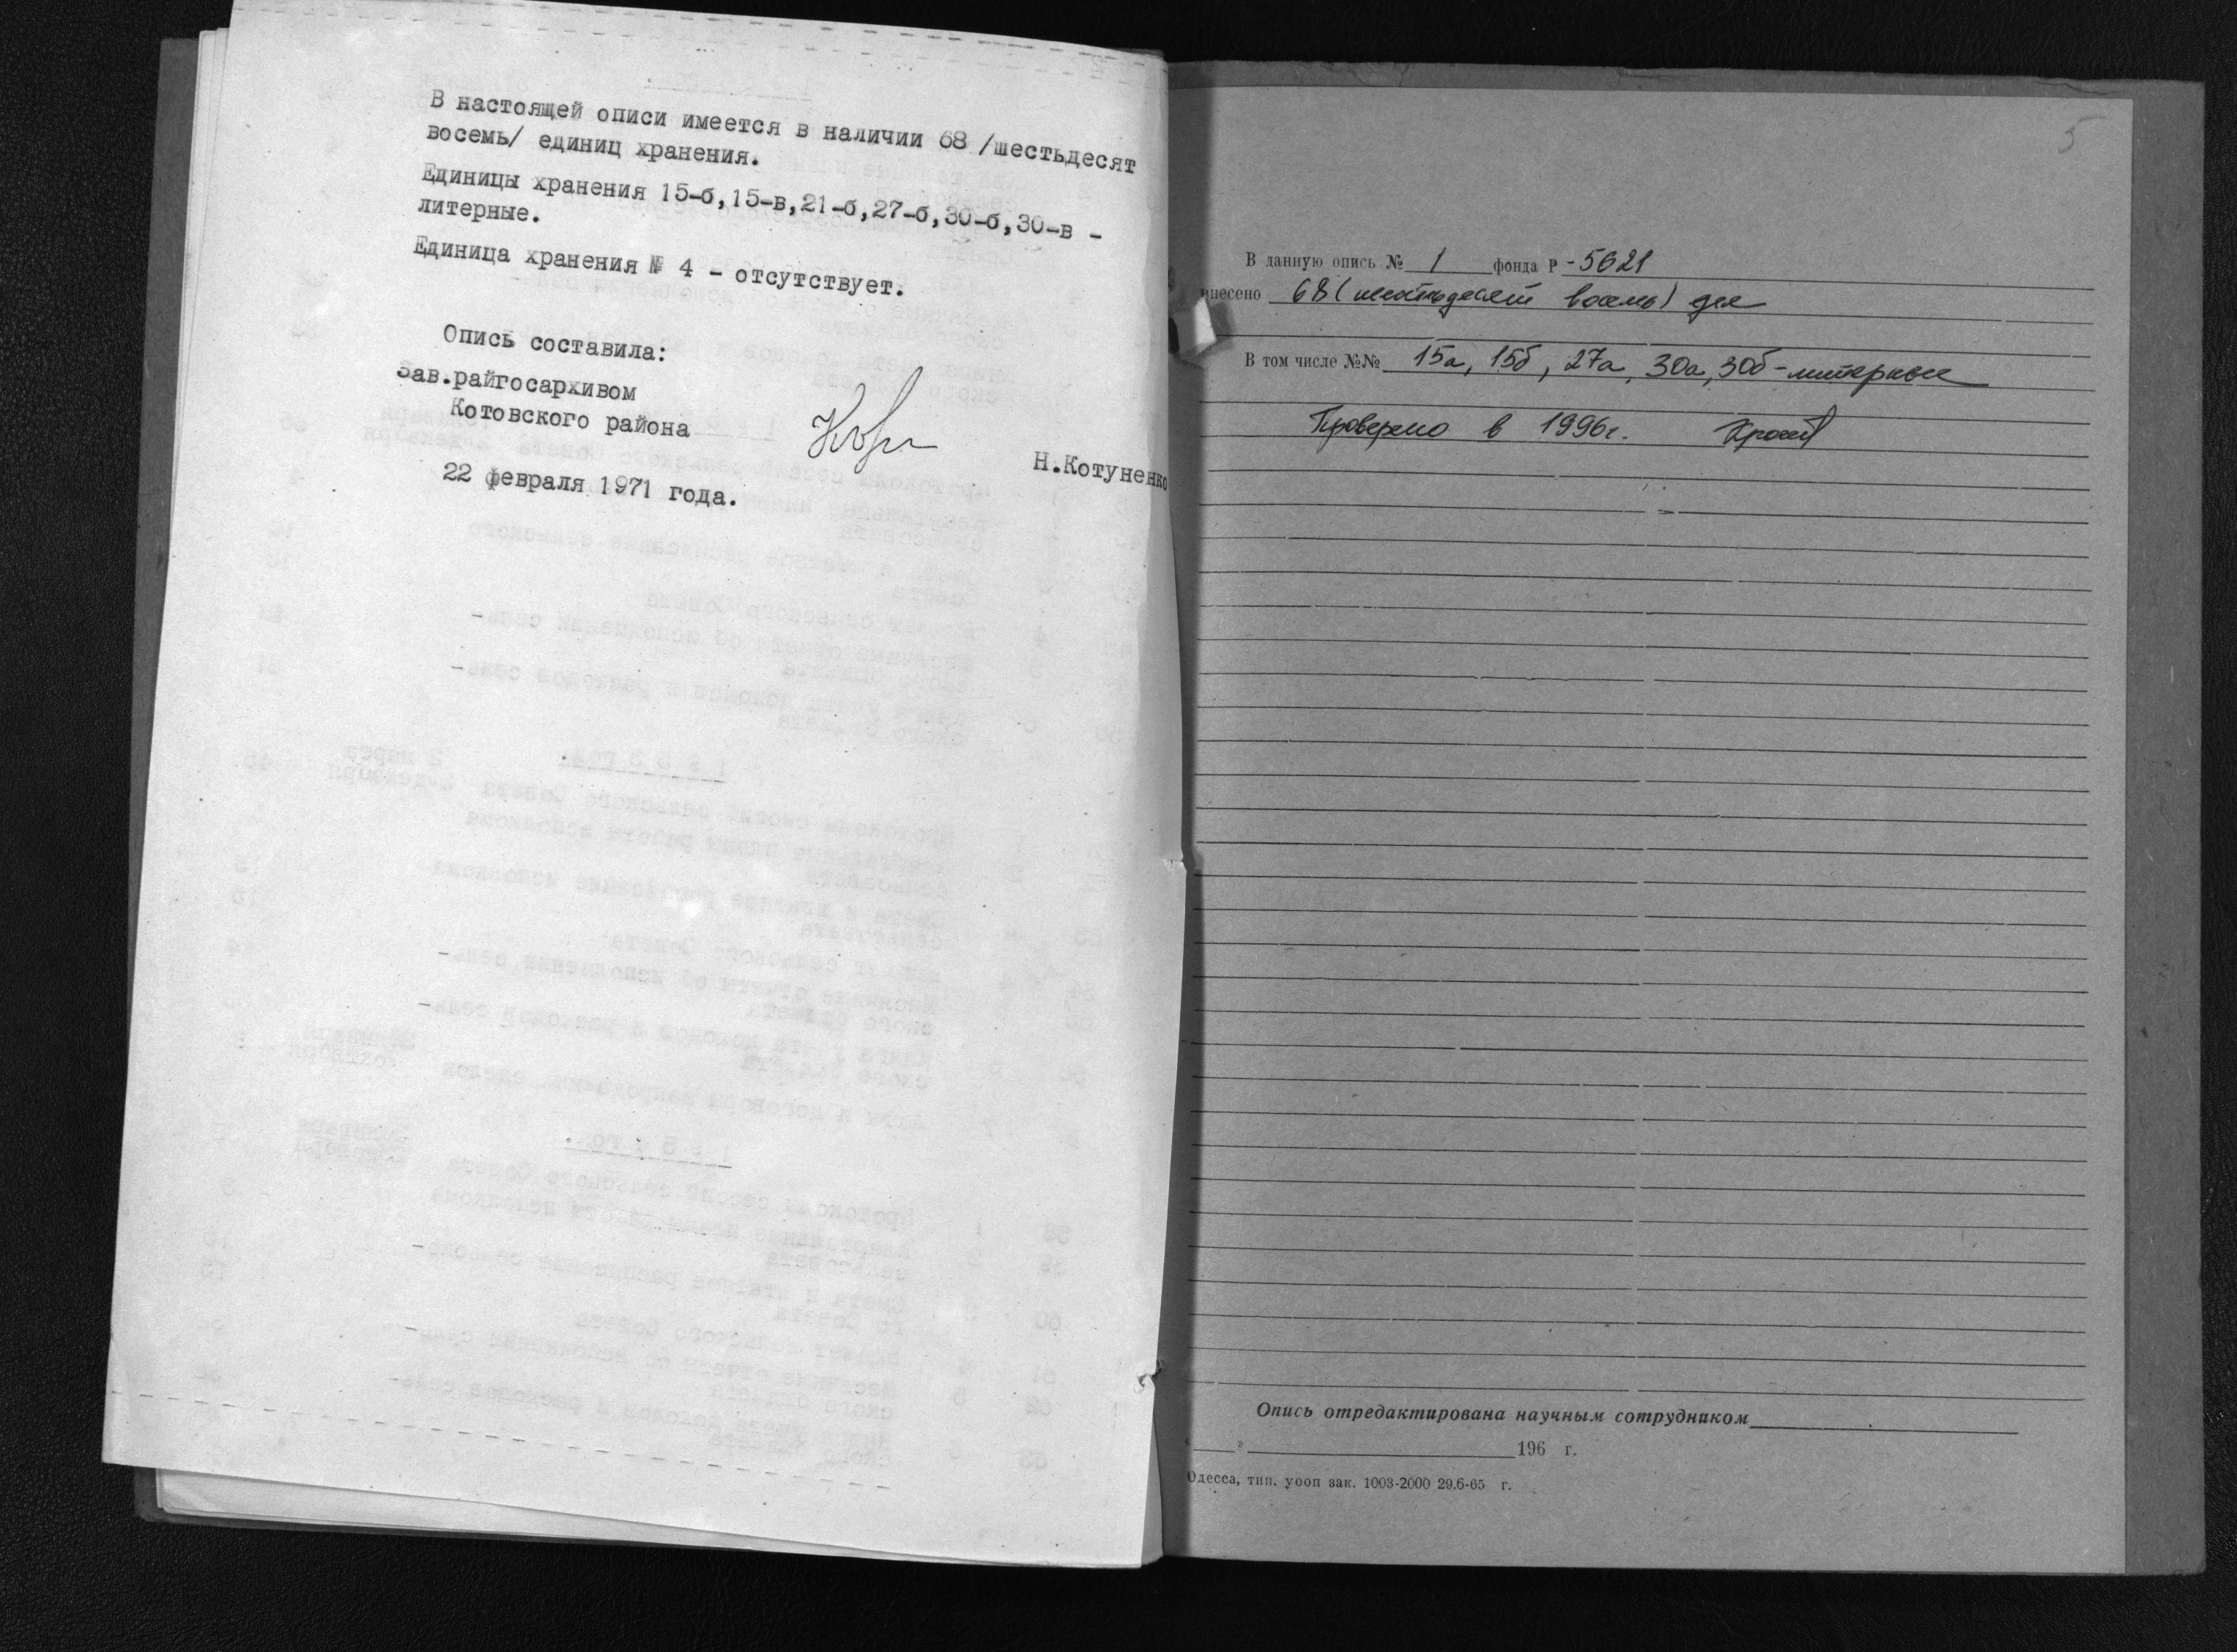 В настоящей описи имеется в наличии 68 /шестьдесят
восемь/ единиц хранения.
Единицы хранения 15-б,15-в,21-б,27-б,30-б,30-в -
литерные.
Единица хранения № 4 - отсутствует.
Опись составила:
Зав.райгосархивом
Котовского района
Н.Котуненко
22 февраля 1971 года.
5
В данную опись № 1 фонда Р-5621
внесено 68 (шестьдесят восемь) дел
В том числе №№ 15а, 15б, 27а, 30а, 30б - литерные
Проверено в 1996г.
Опись отредактирована научным сотрудником
" " 196 г.
Одесса, тип. уооп зак. 1003-2000 29.6-65 г.